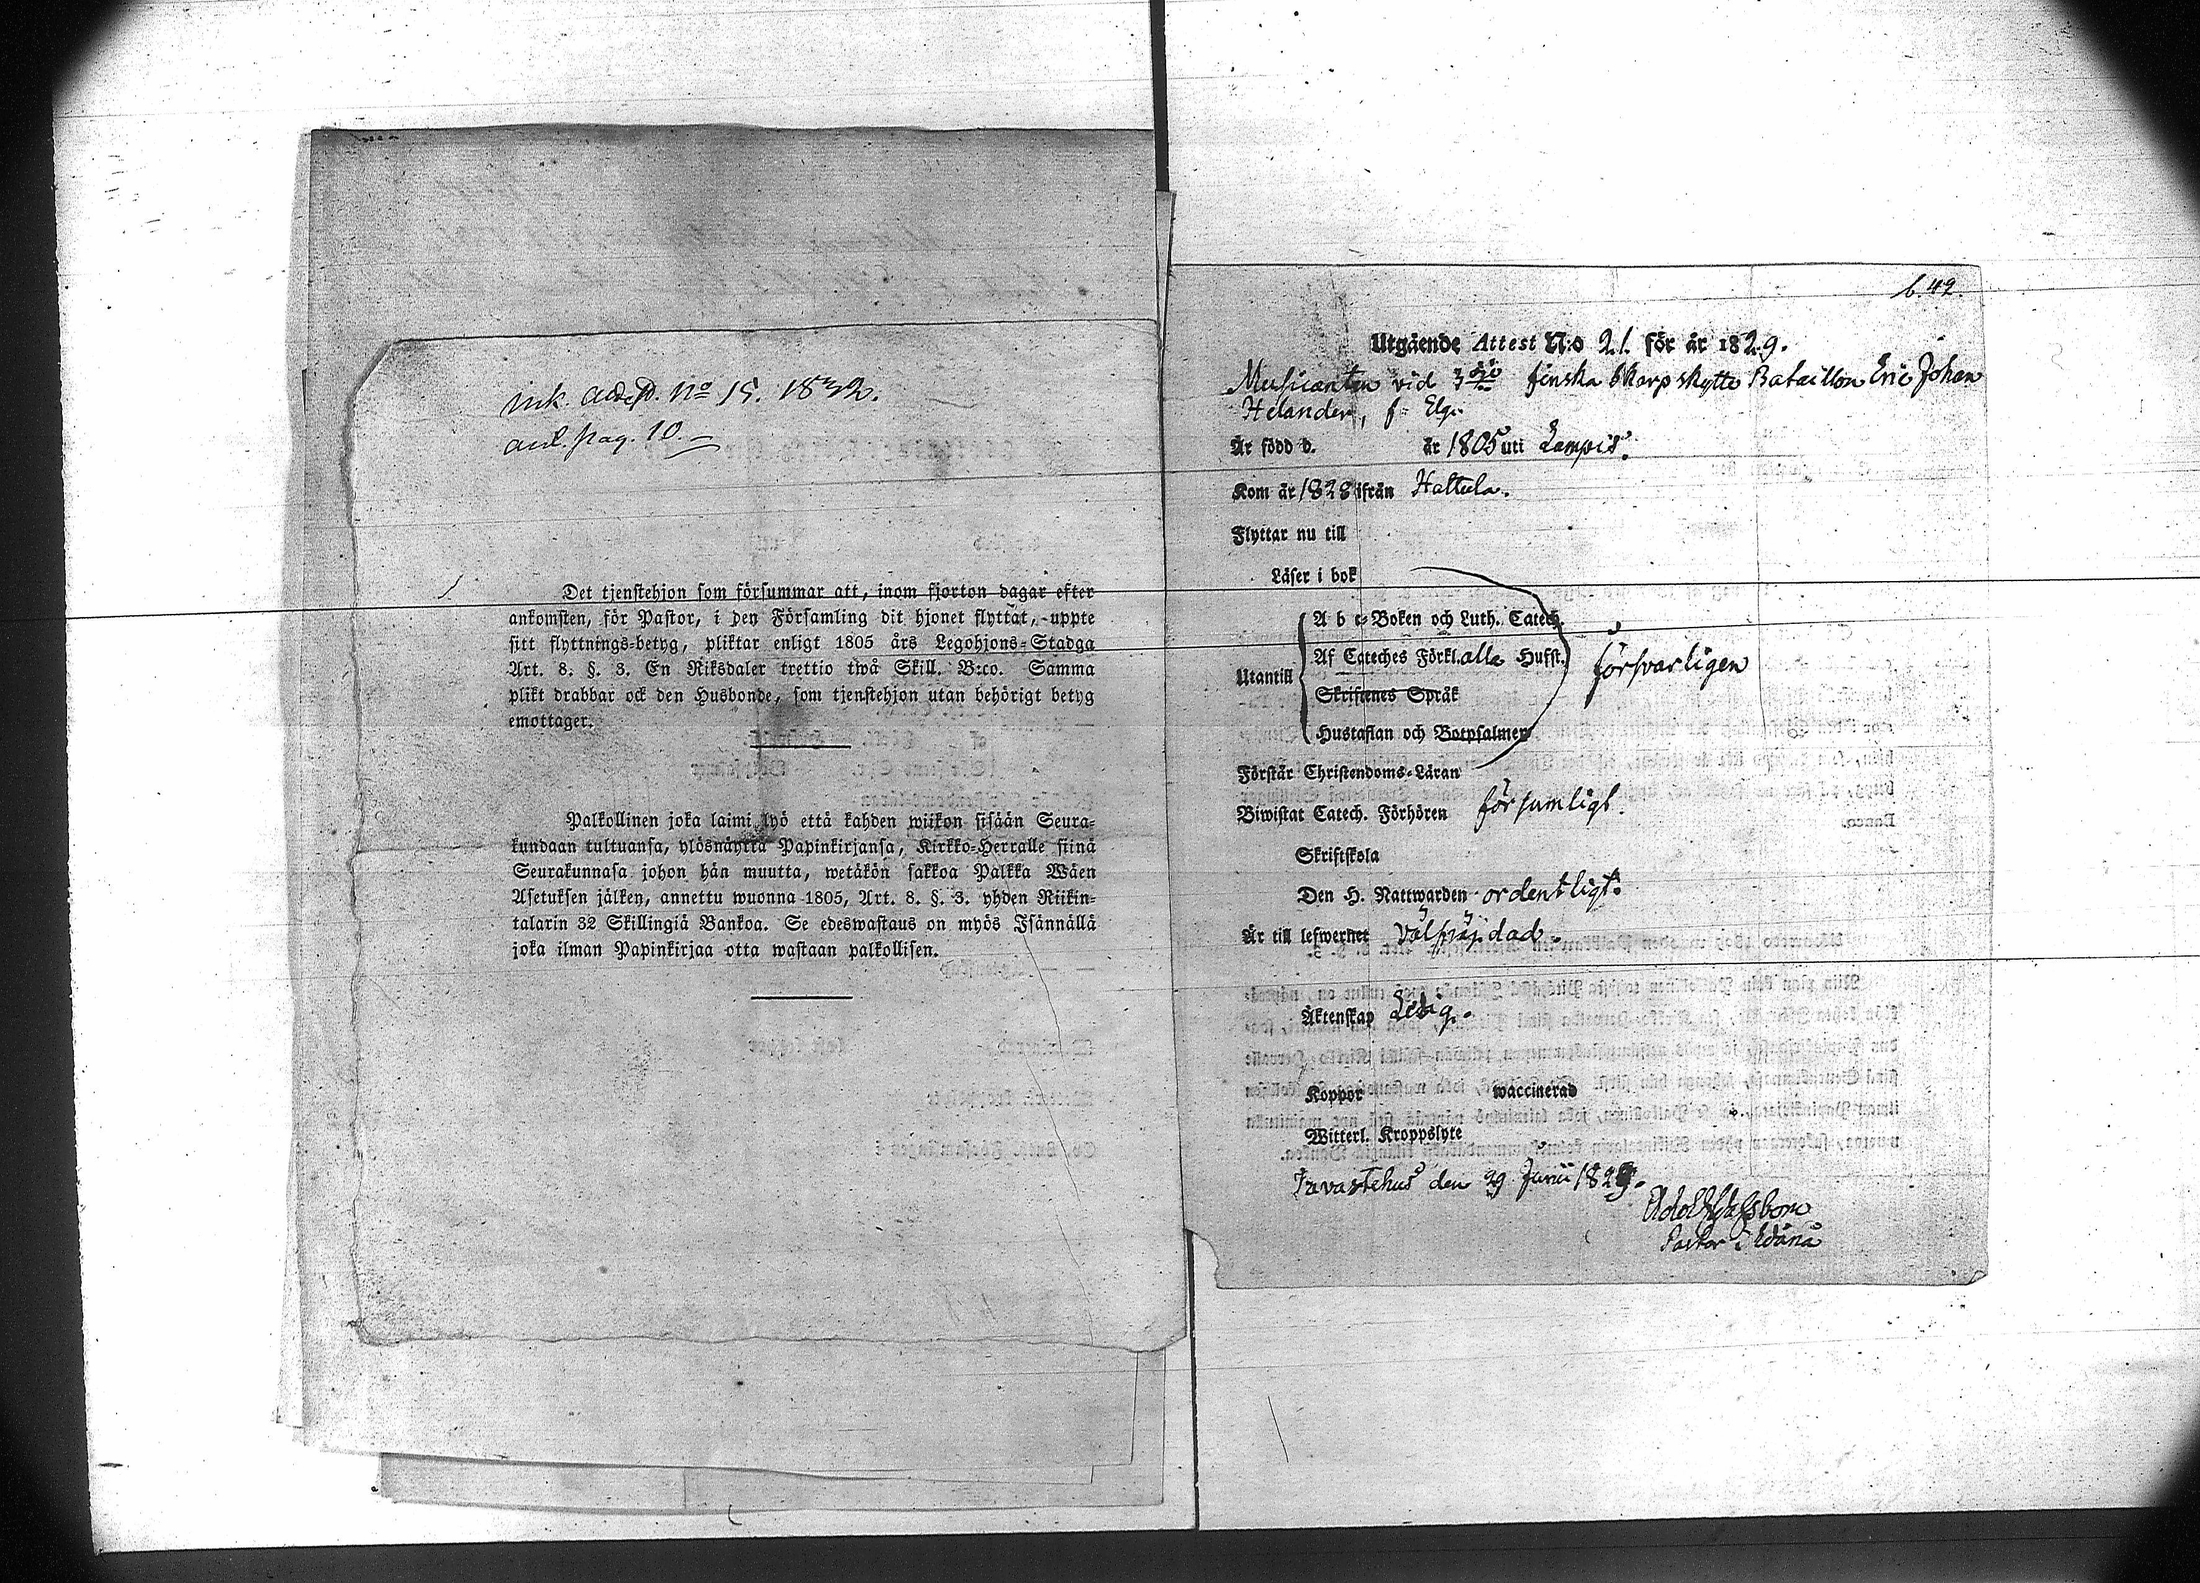 ink. adep. No 15. 1832.
anl. pag. 10.
Det tjenstehjon som försummar att, inom fjorton dagar efter
ankomsten, för Pastor, i den Församling dit hjonet flyttat, uppte
sitt flyttnings-betyg, pliktar enligt 1805 års Legohjons-Stadga
Art. 8. §. 3. En Riksdaler trettio twå Skill. B:co. Samma
plikt drabbar ock den Husbonde, som tjenstehjon utan behörigt betyg
emottager.
Palkollinen joka laimi lyö että kahden wiikon sisään Seura-
kundaan tultuansa, ylösnäyttä Papinkirjansa, Kirkko-Herralle siinä
Seurakunnasa johon hän muutta, wetäkön sakkoa Palkka Wäen
Asetuksen jälken, annettu wuonna 1805, Art. 8. §. 3. yhden Riikin-
talarin 32 Skillingiä Bankoa. Se edeswastaus on myös Isännällä
joka ilman Papinkirjaa otta wastaan palkollisen.
b. 42.
Utgående Attest N:o 21. för år 1829.
Musicanten vid 3die finska Skarpskytte Bataillon Eric Johan
Helander, f= Elg.
Är född d. år 1805 uti Lampis.
Kom år 1828 ifrån Hattula.
Flyttar nu till
Läser i bok
A b c-Boken och Luth. Catech.
Af Cateches Förkl. alla Hufst.
Utantill försvarligen
Skriftenes Språk
Hustaflan och Botpsalmer
Förstår Christendoms-Läran
Biwistat Catech. Förhören försumligt.
Skriftskola
Den H. Nattwarden ordentligt.
Är till lefwernet välfräjdad.
Äktenskap Ledig.
Koppor waccinerad
Witterl. Kroppslyte
Tavastehus den 29 Junii 1829.
Adolf
Pastor i Wånå